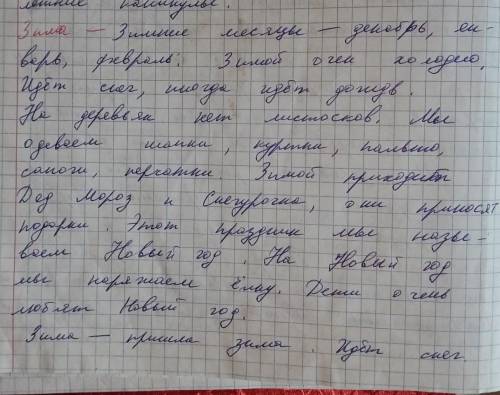 летние каникулы.
Зима — Зимние месяцы — декабрь, ян-
варь, февраль. Зимой очен холодно,
Идёт снег, иногда идёт дождь.
На деревьях нет листосков. Мы
одеваем шапки, куртки, пальто,
сапоги, перчатки Зимой приходит
Дед Мороз и Снегурочка, они приносят
подарки. Этот праздник мы назы-
ваем Новый год. На Новый год
мы наряжаем ёлку. Дети очень
любят Новый год.
Зима — пришла зима. Идёт снег.